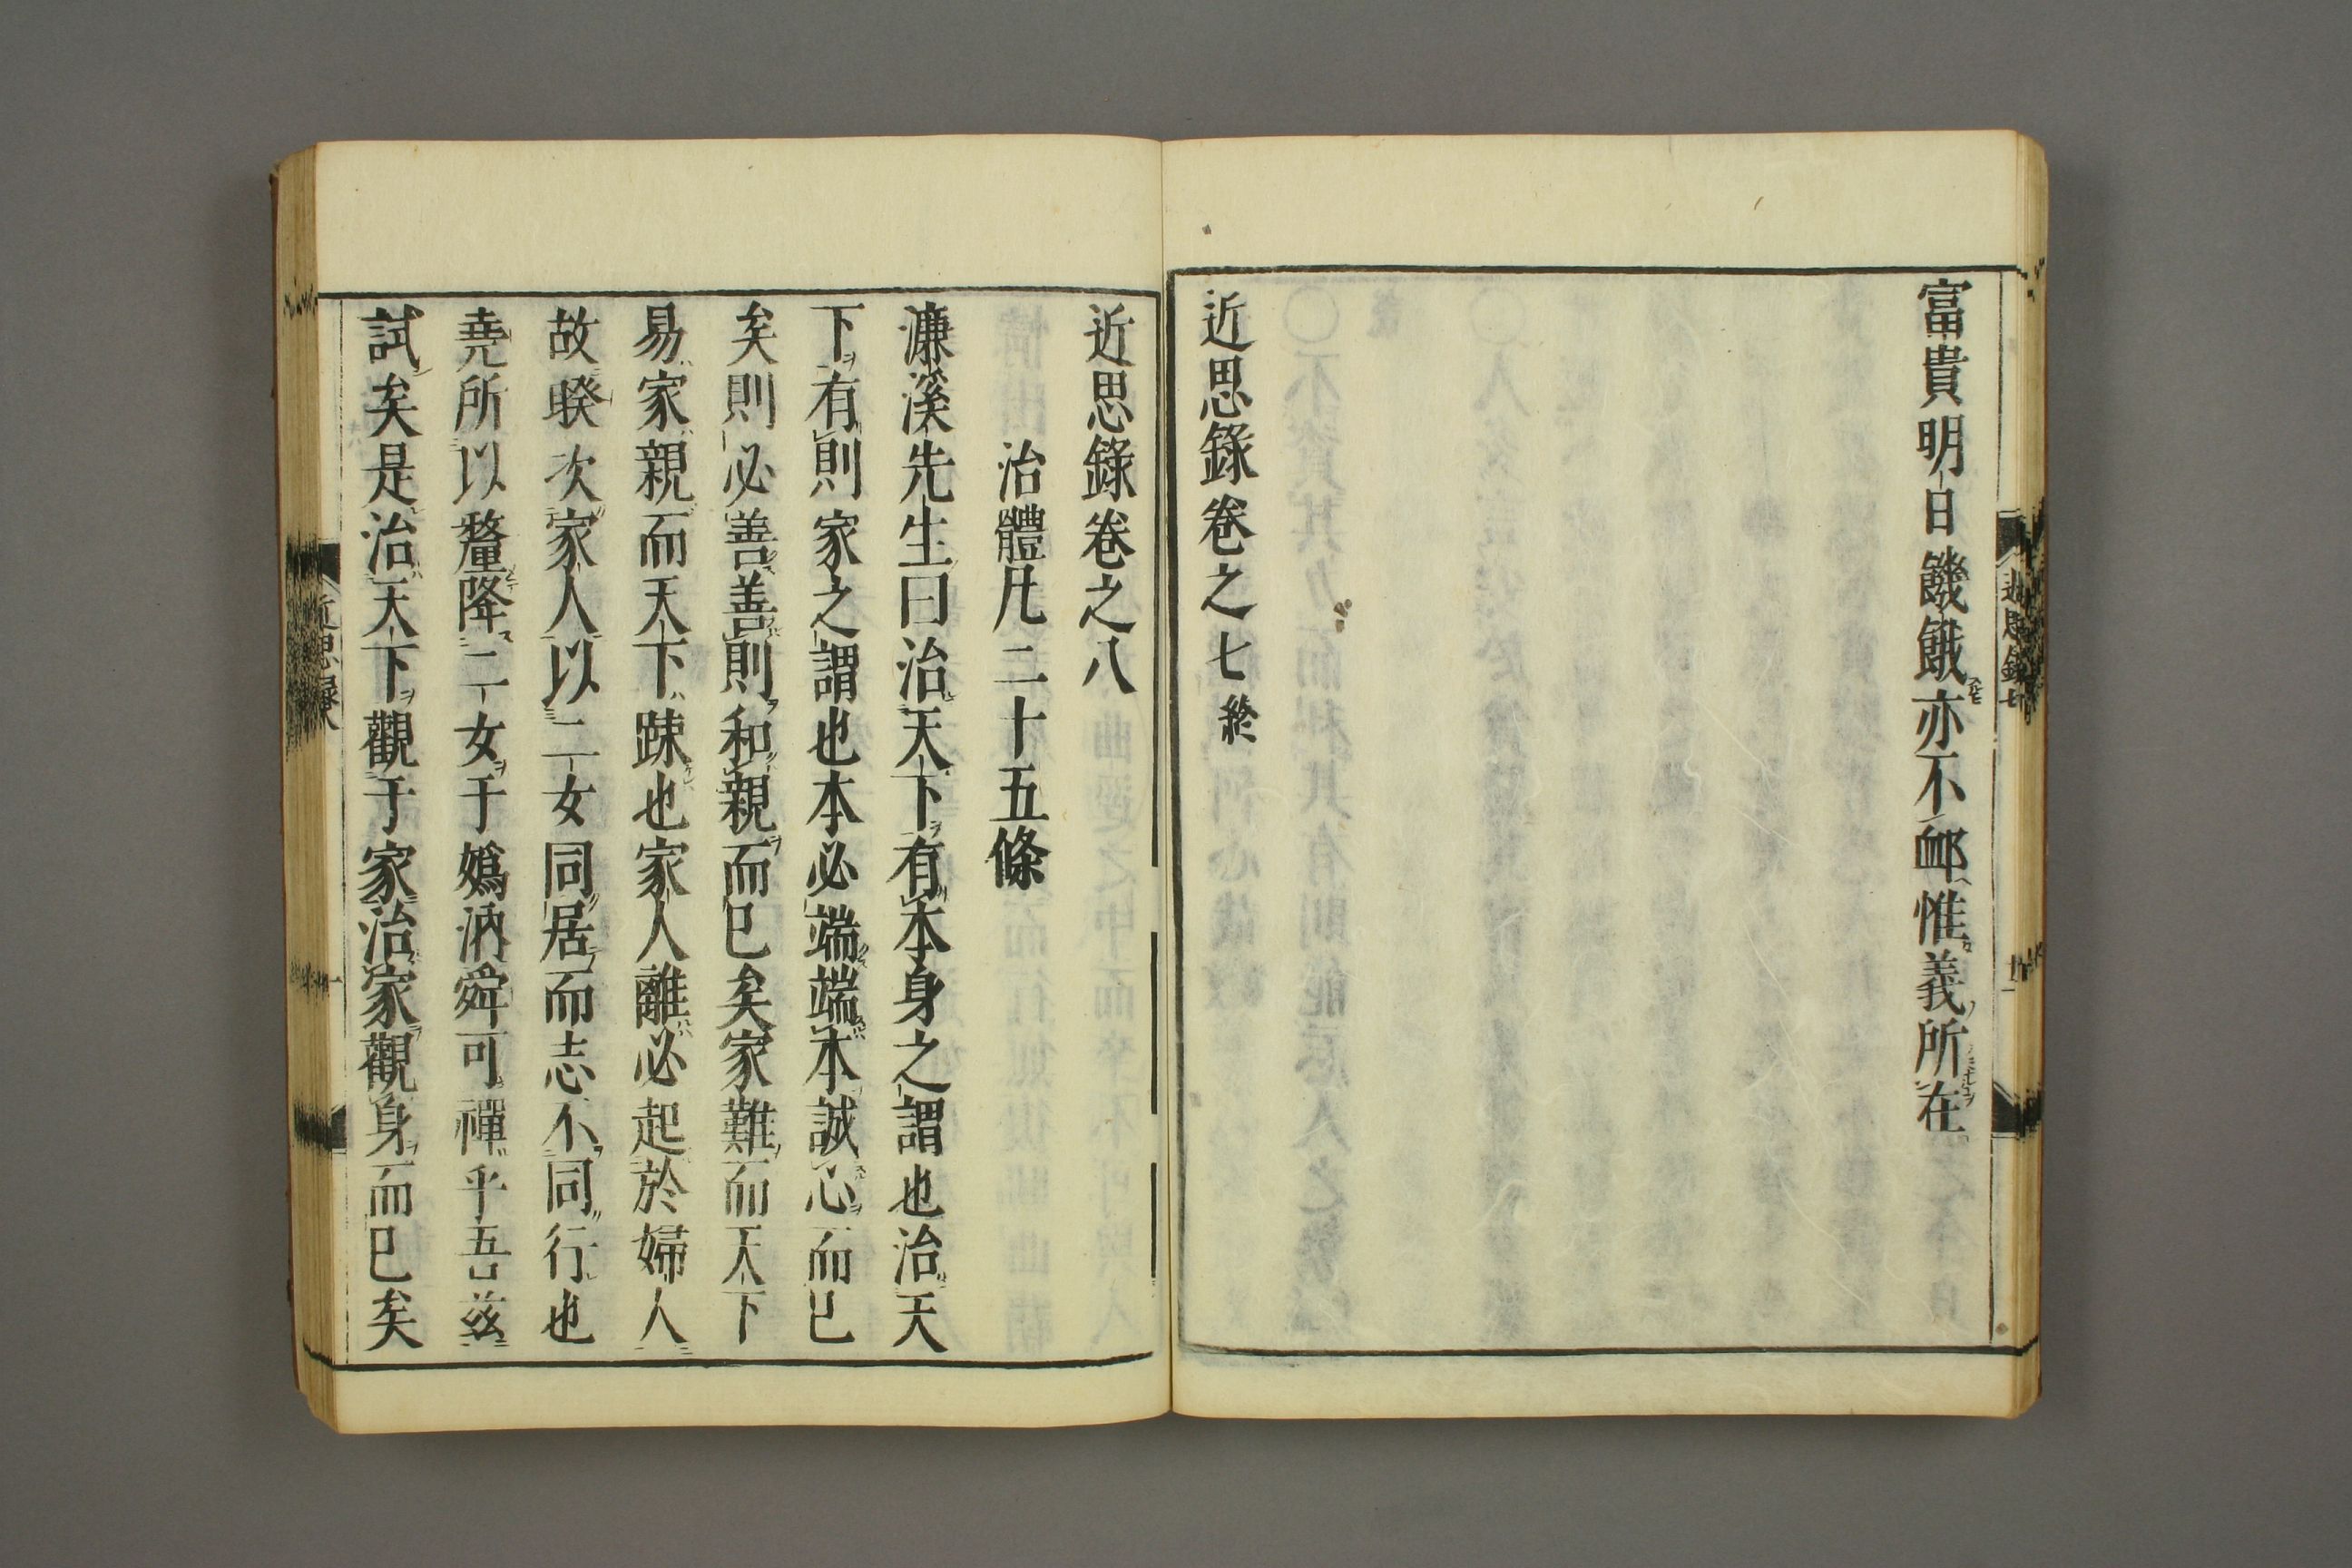 富貴明日饑餓亦不衈惟義所在
近思錄卷之七終
近思錄卷之八
治體凡二十五條
濂溪先生曰治天下有本身之謂也治天
下有則家之謂也本必端端本誠心而已
矣則必善善則和親而已矣家難而天下
易家親而天下踈也家人離必起於婦人
故睽次家人以二女同居而志不同行也
堯所以釐降二女于嬀汭舜可禪乎吾茲
試矣是治天下觀于家治家觀身而已矣